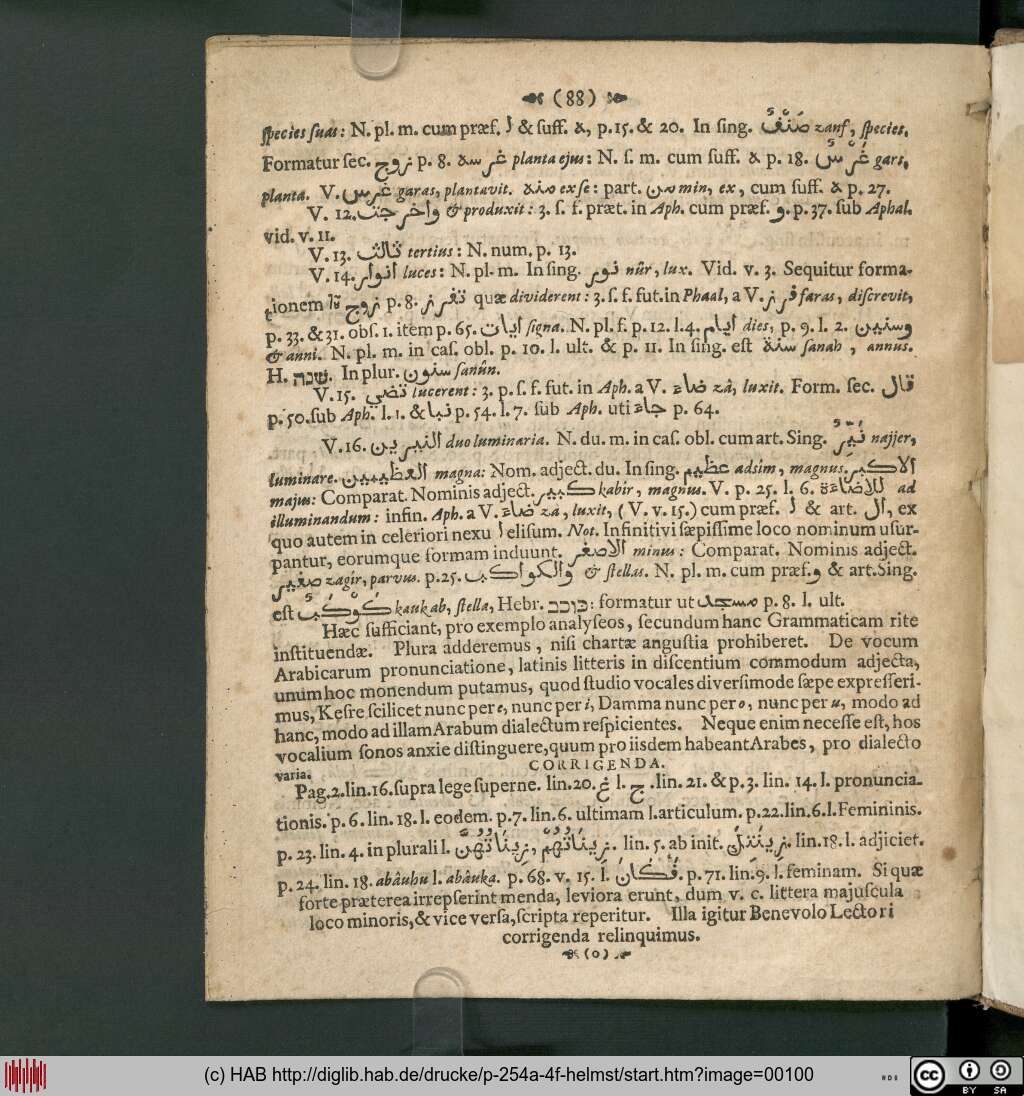 (88)
species suas: N. pl. m. cum præf. ل & suff. ه, p. 15. & 20. In sing. صَنْفٌ zanf, species.
Formatur sec. زوج p. 8. غرسه planta ejus: N. s. m. cum suff. ه p. 18. غَرْسٌ gars,
planta. V. غرس garas, plantavit. منه ex se: part. من min, ex, cum suff. ه p. 27.
V. 12. واخرجت & produxit: 3. s. f. præt. in Aph. cum præf. و. p. 37. sub Aphal.
vid. v. 11.
V. 13. ثالث tertius: N. num. p. 13.
V. 14. انوار luces: N. pl. m. In sing. نور nûr, lux. Vid. v. 3. Sequitur forma-
tionem τȣ͂ زوج p. 8. تفرز quæ dividerent: 3. s. f. fut. in Phaal, a V. فرز faras, discrevit,
p. 33. & 31. obs. 1. item p. 65. ايات signa. N. pl. f. p. 12. l. 4. ايام dies, p. 9. l. 2. وسنين
& anni. N. pl. m. in cas. obl. p. 10. l. ult. & p. 11. In sing. est سنة sanah, annus.
H. שנה. In plur. سنون sanûn.
V. 15. تضي lucerent: 3. p. s. f. fut. in Aph. a V. ضاء zâ, luxit. Form. sec. قال
p. 50. sub Aph. l. 1. & نبا p. 54. l. 7. sub Aph. uti جاء p. 64.
V. 16. النيرين duo luminaria. N. du. m. in cas. obl. cum art. Sing. نَيِّرٌ najjer,
luminare. العظيمين magna: Nom. adject. du. In sing. عظيم adsim, magnus. الاكبر
majus: Comparat. Nominis adject. كبير kabir, magnus. V. p. 25. l. 6. للاضاءة ad
illuminandum: infin. Aph. a V. ضاء zâ, luxit, (V. v. 15.) cum præf. ل & art. ال, ex
quo autem in celeriori nexu ا elisum. Not. Infinitivi sæpissime loco nominum usur-
pantur, eorumque formam induunt. الاصغر minus: Comparat. Nominis adject.
صغير zagîr, parvus. p. 25. والكواكب & stellas. N. pl. m. cum præf. و & art. Sing.
est كَوْكَبٌ kaukab, stella, Hebr. כוכב: formatur ut مسجد p. 8. l. ult.
Hæc sufficiant, pro exemplo analyseos, secundum hanc Grammaticam rite
instituendæ. Plura adderemus, nisi chartæ angustia prohiberet. De vocum
Arabicarum pronunciatione, latinis litteris in discentium commodum adjecta,
unum hoc monendum putamus, quod studio vocales diversimode sæpe expresseri-
mus, Kesre scilicet nunc per e, nunc per i, Damma nunc per o, nunc per u, modo ad
hanc, modo ad illam Arabum dialectum respicientes. Neque enim necesse est, hos
vocalium sonos anxie distinguere, quum pro iisdem habeant Arabes, pro dialecto
varia.
CORRIGENDA.
Pag. 2. lin. 16. supra lege superne. lin. 20. غ l. ج. lin. 21. & p. 3. lin. 14. l. pronuncia-
tionis. p. 6. lin. 18. l. eodem. p. 7. lin. 6. ultimam l. articulum. p. 22. lin. 6. l. Femininis.
p. 23. lin. 4. in plurali l. زِينَاتُهُمْ, زِينَاتُهُنَّ. lin. 5. ab init. lin. 18. l. adjiciet.
p. 24. lin. 18. abâuhu l. abâuka. p. 68. v. 15. l. فَكَانَ. p. 71. lin. 9. l. feminam. Si quæ
forte præterea irrepserint menda, leviora erunt, dum v. c. littera majuscula
loco minoris, & vice versa, scripta reperitur. Illa igitur Benevolo Lectori
corrigenda relinquimus.
(o)
(c) HAB http://diglib.hab.de/drucke/p-254a-4f-helmst/start.htm?image=00100
cc BY SA